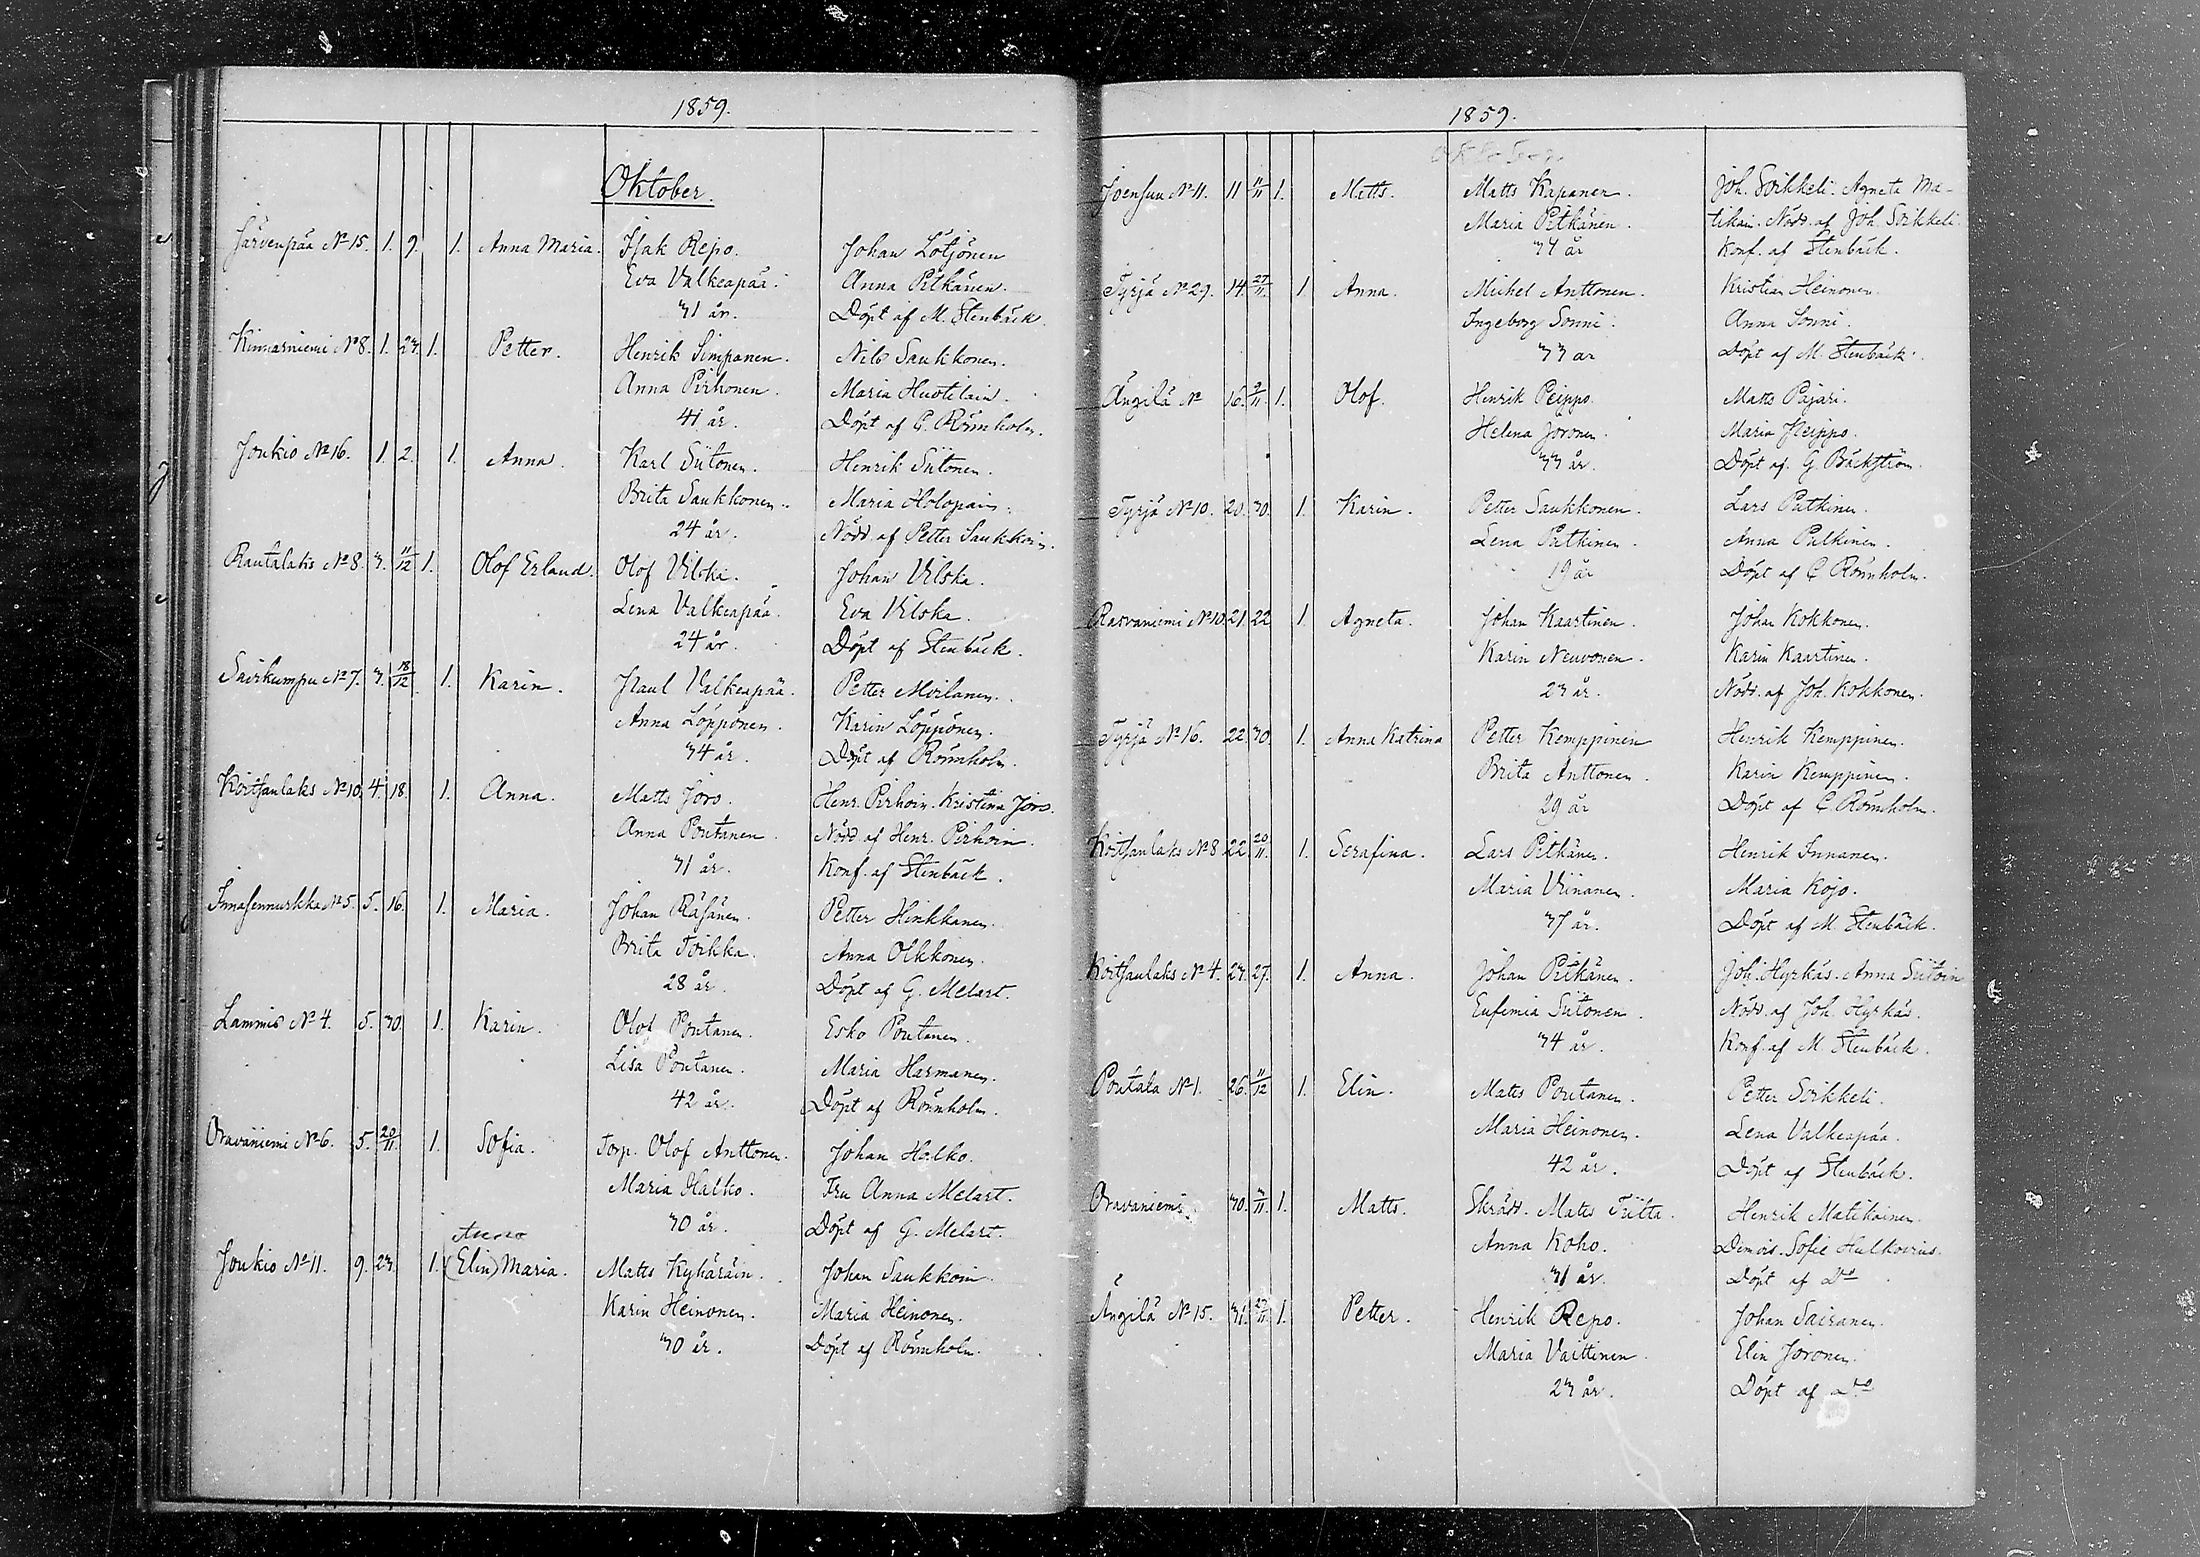 1859.
Oktober.
Järvenpää No 15. 1. 9. 1. Anna Maria. Isak Repo. Johan Lötjönen
Eva Valkeapää. Anna Pitkänen.
31 år. Döpt af M. Stenbäck.
Kinnarniemi No 8. 1. 23. 1. Petter. Henrik Simpanen. Nils Saukkonen.
Anna Pirhonen. Maria Huotilain.
41 år. Döpt af C. Rönnholm.
Joukio No 16. 1. 2. 1. Anna. Karl Siitonen. Henrik Siitonen.
Brita Saukkonen. Maria Holopain.
24 år. Nödd. af Petter Saukkoin.
Rautalaks No 8. 3. 11/12 1. Olof Erland. Olof Vilska. Johan Vilska.
Lena Valkeapää. Eva Vilska.
24 år. Döpt af Stenbäck.
Sairkumpu No 7. 3. 18/12 1. Karin. Paul Valkeapää. Petter Moilanen.
Anna Löppönen. Karin Löppönen.
34 år. Döpt af Rönnholm.
Koitsanlaks No 10. 4. 18. 1. Anna. Matts Joro. Henr. Pirhoin. Kristina Joro.
Anna Poutanen. Nödd af Henr. Pirhoin.
31 år. Konf. af Stenbäck.
5. 5. 16. 1. Maria. Johan Räsänen. Petter Hinkkanen.
Brita Toikka. Anna Olkkonen.
28 år. Döpt af G. Melart.
Lammis No 4. 5. 30. 1. Karin. Olof Poutanen. Esko Poutanen.
Lisa Poutanen. Maria Harmanen.
42 år. Döpt af Rönnholm.
Oravaniemi No 6. 5. 20/11. 1. Sofia. Torp. Olof Anttonen. Johan Halko.
Maria Halko. Fru Anna Melart.
30 år. Döpt af G. Melart.
Joukio No 11. 9. 23. 1. (Elin) Maria. Matts Kyhäräin. Johan Saukkoin.
Karin Heinonen. Maria Heinonen.
30 år. Döpt af Rönnholm.
1859.
Oktober
Joensuu No 11. 11 11/11 1. Matts. Matts Kapanen. Joh. Soikkeli. Agneta Ma-
Maria Pitkänen. tikain. Nödd. af Joh. Soikkeli.
34 år Konf. af Stenbäck.
Tyrjä No 29. 14. 27/11. 1. Anna. Michel Anttonen. Kristian Heinonen.
Ingeborg Sonni. Anna Sonni.
33 år Döpt af M. Stenbäck.
Ängilä No 16. 9/11. 1. Olof. Henrik Peippo. Matts Pajari.
Helena Joronen. Maria Peippo.
33 år. Döpt af G. Bäckström.
Tyrjä No 10. 20. 30. 1. Karin. Petter Saukkonen. Lars Putkinen.
Lena Putkinen. Anna Putkinen.
19 år Döpt af C Rönnholm.
Rasvaniemi No 10. 21. 22 1. Agneta. Johan Kaartinen. Johan Kokkonen.
Karin Neuvonen. Karin Kaartinen.
23 år. Nödd. af Joh. Kokkonen.
Tyrjä No 16. 22. 30. 1. Anna Katrina Petter Kemppinen Henrik Kemppinen.
Brita Anttonen. Karin Kemppinen.
29 år Döpt af C. Rönnholm.
Koitsanlaks No 8 22 20/11. 1. Serafina. Lars Pitkänen. Henrik Innanen.
Maria Viinanen. Maria Kojo.
37 år. Döpt af M. Stenbäck.
Koitsanlaks No 4. 23. 27. 1. Anna. Johan Pitkänen. Joh. Hyrkäs. Anna Siitoin
Eufemia Siitonen. Nödd. af Joh. Hyrkäs.
34 år. Konf. af M. Stenbäck.
Poutala No 1. 26. 11/12 1. Elin. Matts Poutanen. Petter Soikkeli.
Maria Heinonen. Lena Valkeapää.
42 år. Döpt af Stenbäck.
Oravaniemi. 30. 3/11. 1. Matts. Skrädd. Matts Tiitta. Henrik Matikainen.
Anna Koho. Demois. Sofie Hulkovius.
31 år. Döpt af Do
Ängilä No 15. 31. 27/11. 1. Petter. Henrik Repo. Johan Sairanen.
Maria Vaittinen. Elin Joronen.
23 år. Döpt af Do